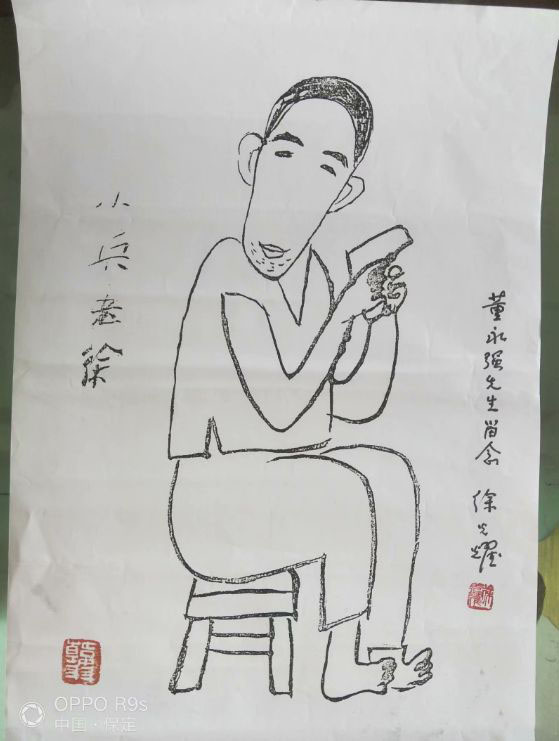 小兵老徐
董永强先生留念
徐光耀
OPPO R9s
中国·保定